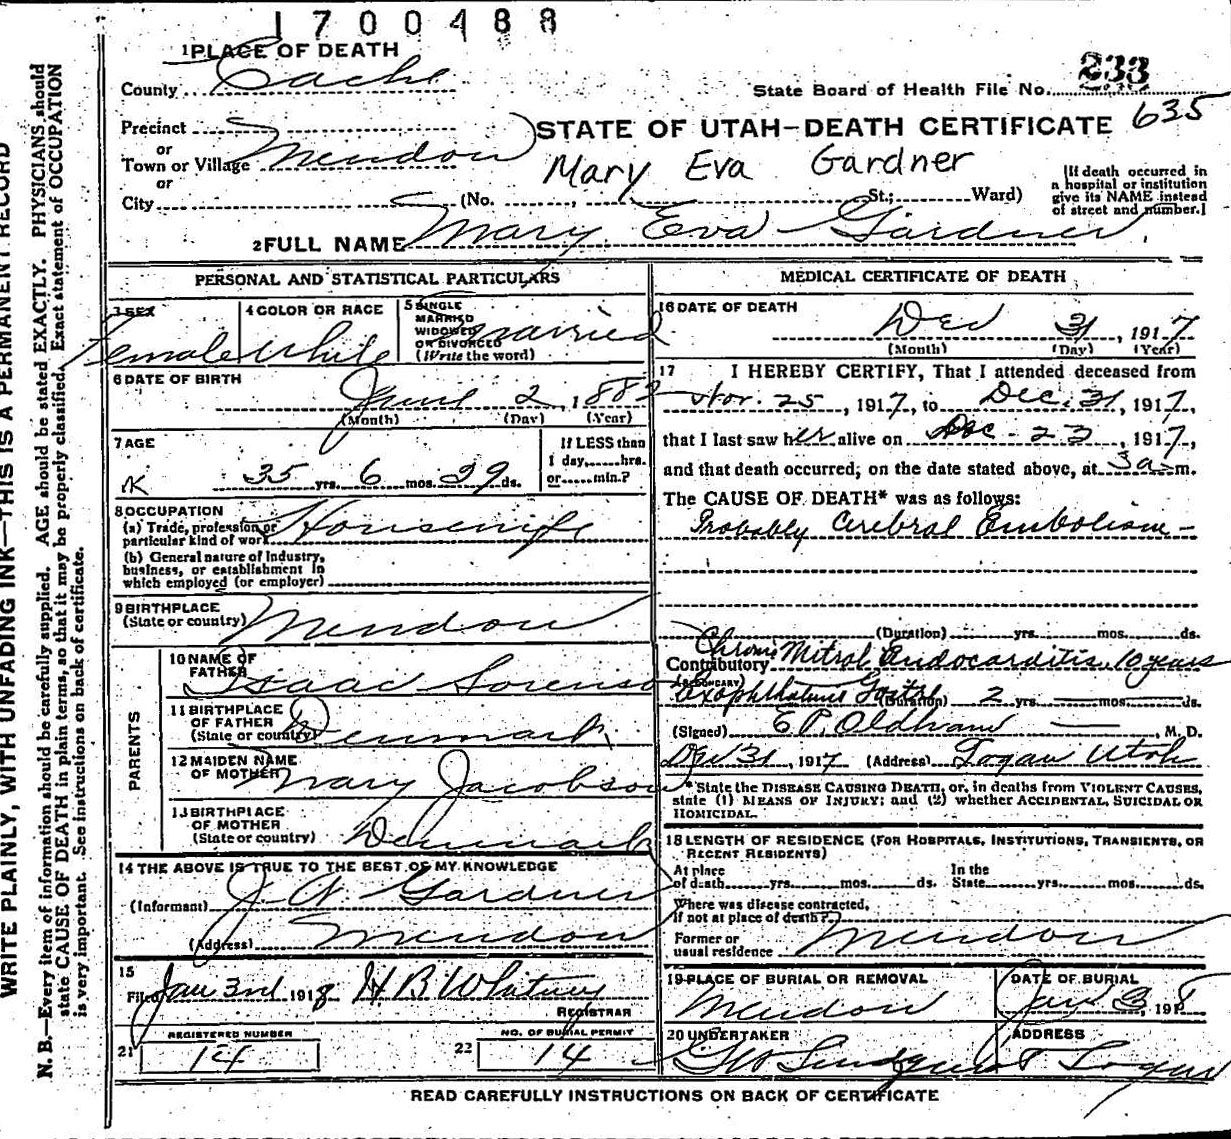 1700488
1 PLACE OF DEATH
County Cache
State Board of Health File No. 233
635
Precinct
or
Town or Village Mendon
or
City (No. , St.; Ward)
STATE OF UTAH—DEATH CERTIFICATE
Mary Eva Gardner
[If death occurred in
a hospital or institution
give its NAME instead
of street and number.]
2 FULL NAME Mary Eva Gardner
PERSONAL AND STATISTICAL PARTICULARS
3 SEX
Female
4 COLOR OR RACE
White
5 SINGLE
MARRIED
WIDOWED
OR DIVORCED
(Write the word)
Married
6 DATE OF BIRTH
June 2, 1882
(Month) (Day) (Year)
7 AGE
35 yrs. 6 mos. 29 ds.
If LESS than
1 day,......hrs.
or......min.?
8 OCCUPATION
(a) Trade, profession or
particular kind of work Housewife
(b) General nature of Industry,
business, or establishment in
which employed (or employer)
9 BIRTHPLACE
(State or country) Mendon
PARENTS
10 NAME OF
FATHER Isaac Sorenson
11 BIRTHPLACE
OF FATHER
(State or country) Denmark
12 MAIDEN NAME
OF MOTHER Mary Jacobson
13 BIRTHPLACE
OF MOTHER
(State or country) Denmark
14 THE ABOVE IS TRUE TO THE BEST OF MY KNOWLEDGE
(Informant) Gardner
(Address) Mendon
15
Filed Jan 3rd 1918 H B Whitney
REGISTRAR
REGISTERED NUMBER
21 14
NO. OF BURIAL PERMIT
22 14
MEDICAL CERTIFICATE OF DEATH
16 DATE OF DEATH
Dec 31, 1917
(Month) (Day) (Year)
17 I HEREBY CERTIFY, That I attended deceased from
Nov. 25, 1917, to Dec. 31, 1917,
that I last saw her alive on Dec - 23, 1917,
and that death occurred, on the date stated above, at 3 a m.
The CAUSE OF DEATH* was as follows:
Probably Cerebral Embolism -
(Duration) yrs. mos. ds.
Chronic Mitral Endocarditis, 10 years
Contributory
(SECONDARY)
Exophthalmic Goitre (Duration) 2 yrs. mos. ds.
(Signed) E. P. Oldham, M. D.
Dec 31, 1917 (Address) Logan Utah
* State the DISEASE CAUSING DEATH, or, in deaths from VIOLENT CAUSES,
state (1) MEANS OF INJURY; and (2) whether ACCIDENTAL, SUICIDAL OR
HOMICIDAL.
18 LENGTH OF RESIDENCE (FOR HOSPITALS, INSTITUTIONS, TRANSIENTS, OR
RECENT RESIDENTS)
At place
of death......yrs......mos......ds.
In the
State......yrs......mos......ds.
Where was disease contracted,
if not at place of death?
Former or
usual residence Mendon
19 PLACE OF BURIAL OR REMOVAL
Mendon
DATE OF BURIAL
Jan 3, 1918
20 UNDERTAKER
Geo Lindquist
ADDRESS
Logan
READ CAREFULLY INSTRUCTIONS ON BACK OF CERTIFICATE
WRITE PLAINLY, WITH UNFADING INK—THIS IS A PERMANENT RECORD
N. B.—Every item of information should be carefully supplied. AGE should be stated EXACTLY. PHYSICIANS should
state CAUSE OF DEATH in plain terms, so that it may be properly classified. Exact statement of OCCUPATION
is very important. See instructions on back of certificate.